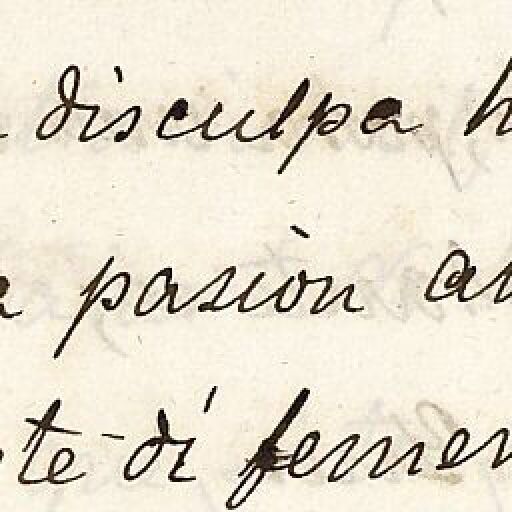 disculpa h
a pasiòn an
te - dí femen